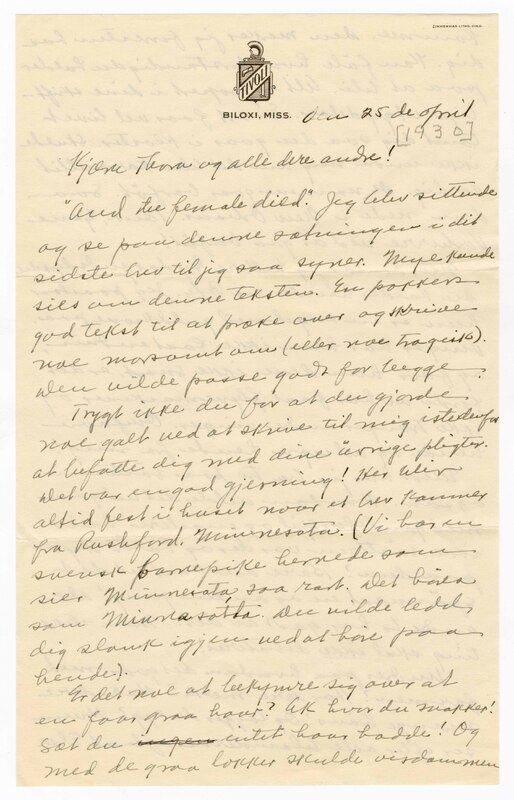 TIVOLI
BILOXI, MISS.
Den 25 de april
[1930]
Kjære Thora og alle dere andre!
"And the female died". Jeg blev sittende
og se paa denne sætningen i dit
sidste brev til jeg saa syner. Mye kunde
sies om denne teksten. En pokkers
god tekst til at præke over og skrive
noe morsomt om (eller noe tragisk).
Den vilde passe godt for begge.
Frygt ikke du for at du gjorde
noe galt ved at skrive til mig istedenfor
at befatte dig med dine øvrige pligter.
Det var en god gjerning! Her blir
altid fest i huset naar et brev kommer
fra Rushford, Minnesota. (Vi har en
svensk barnepike hernede som
sier Minnesota saa rart. Det høres
som Minnasåtta. Du vilde ledd
dig slank igjen ved at høre paa
hende).
Er det noe at bekymre sig over at
en faar graa haar? Ak hvor du snakker!
Sæt du ingen intet haar hadde! Og
med de graa lokker skulde visdommen